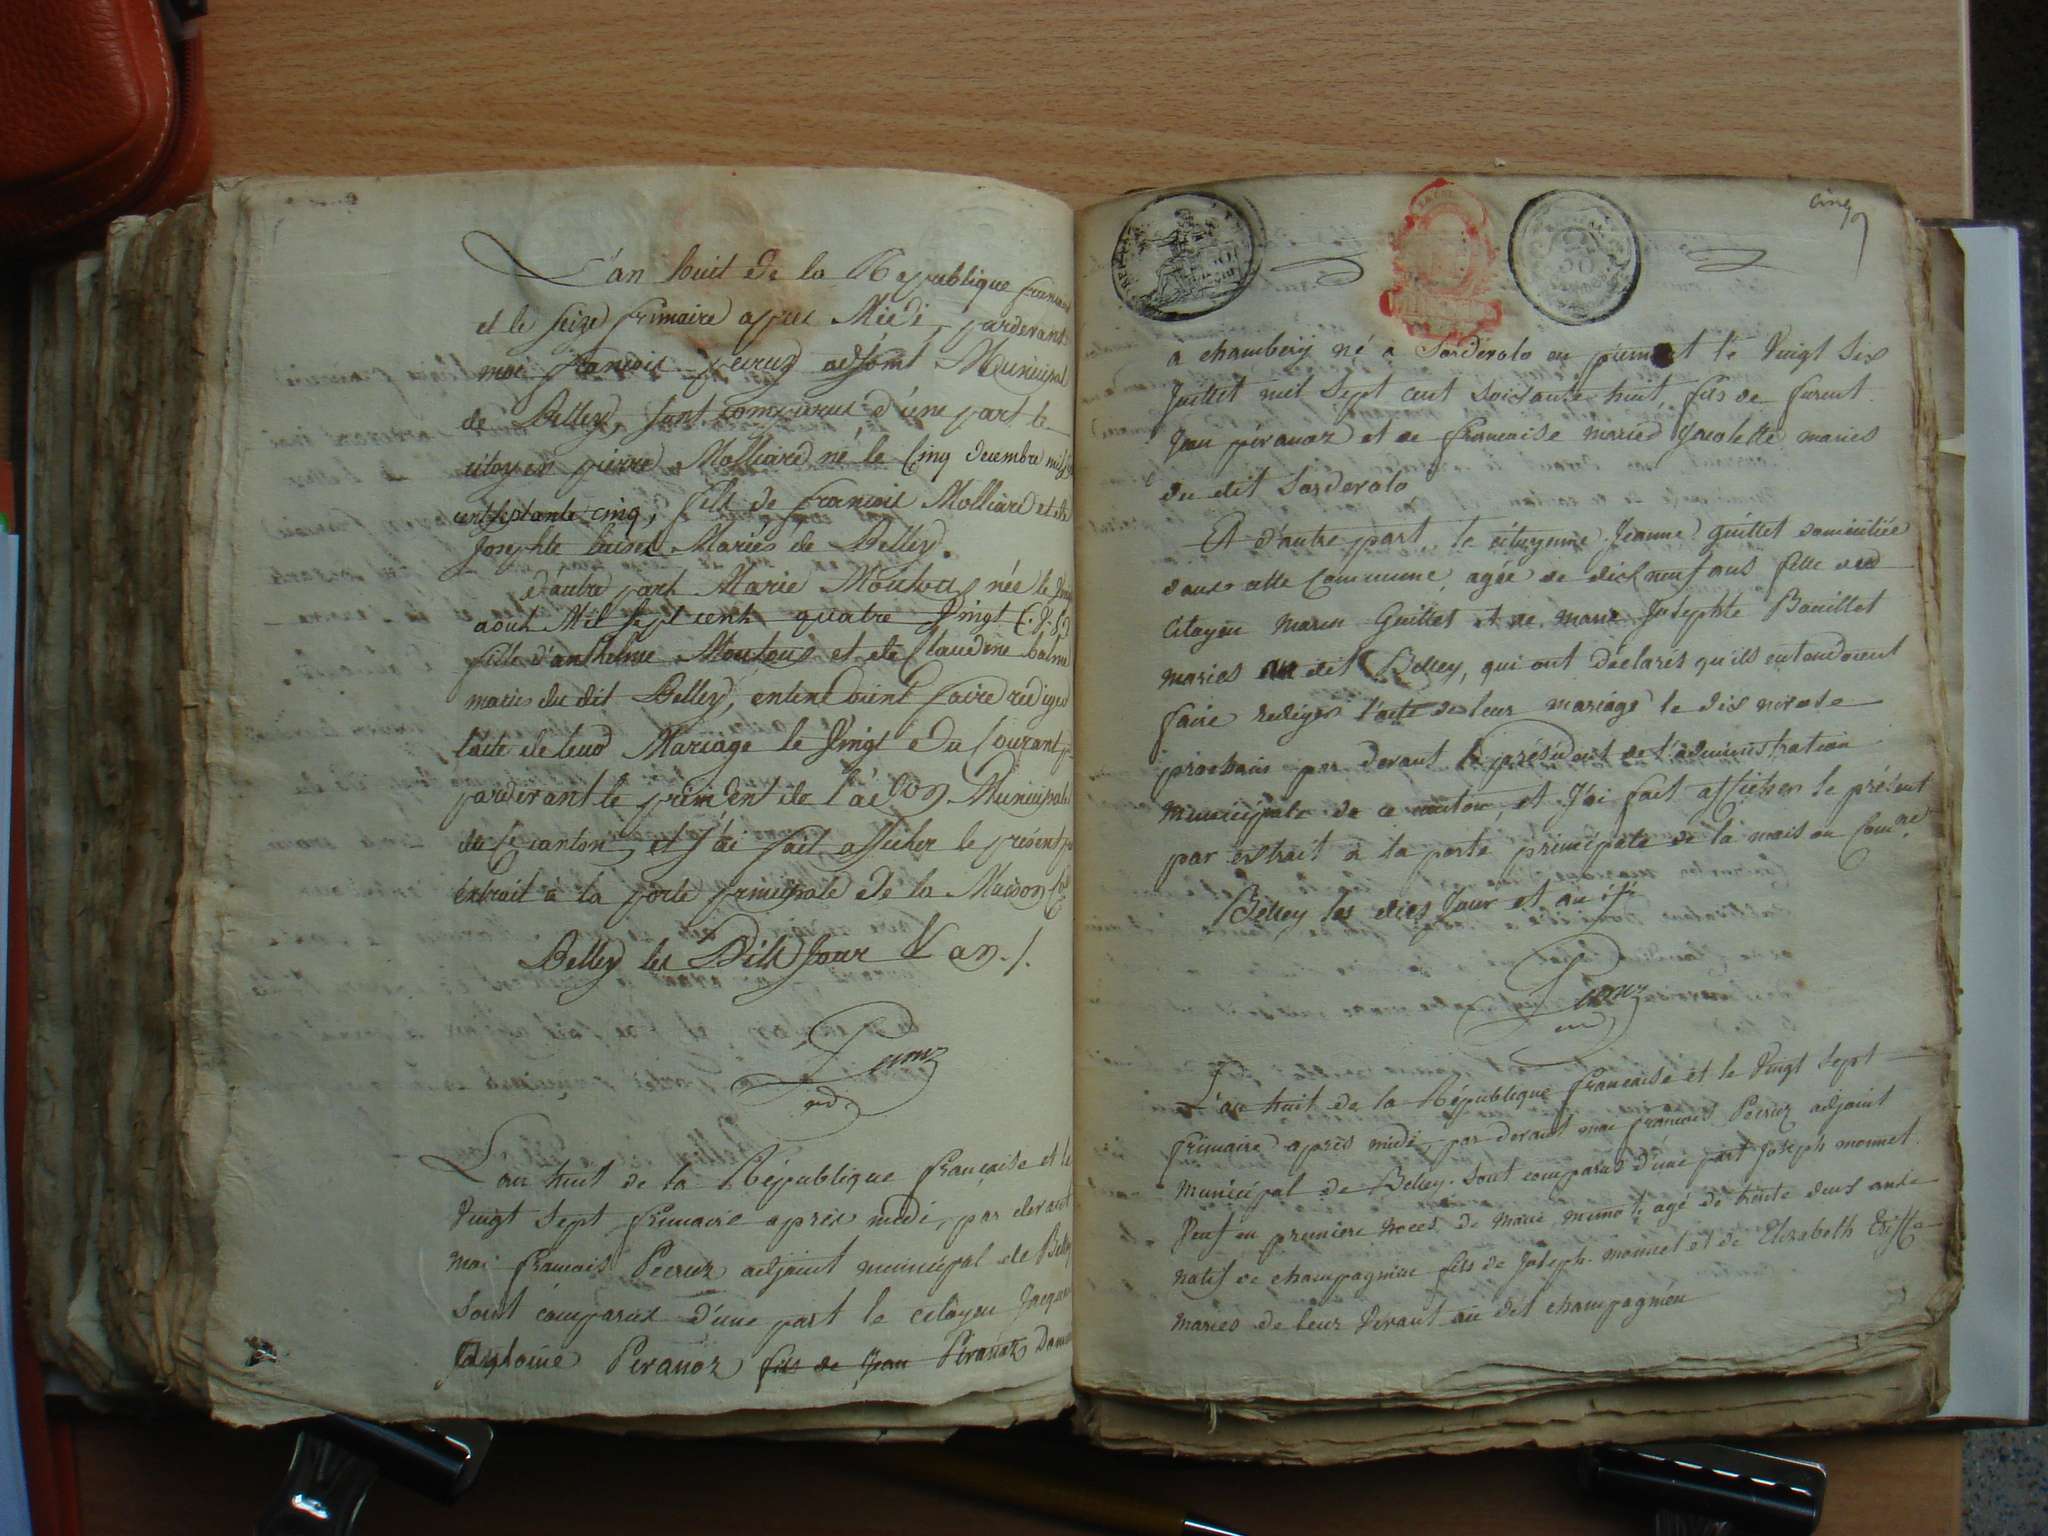 L'an huit de la Republique
et le seize frimaire apres Midi, pardevant
moi françois peeruz adjoint Municipal
de Belley, sont comparus d'une part le
citoyen pierre Molliard né le Cinq decembre
cent septante cinq, fils de françois Molliard et de
Josephte Mariés de Belley.
d'autre part Marie Moutous née le
aout Mil sept cent quatre Vingt
fille d'anthelme Moutous et de Claudine
mariés du dit Belley, entendoient faire rediger
l'acte de leur Mariage le Vingt du Courant
pardevant le president de l'ad.on Municipale
du Ce canton et j'ai fait afficher le présent
extrait à la porte principale de la Maison
Belley les Dits Jour & an ./.
Peeruz
adj.
L'an huit de la République française et le
Vingt Sept frimaire après midi, par devant
moi francois Peeruz adjoint municipal de
Sont comparus d'une part le citoyen
Antoine Peranoz fils de Jean Peranoz
cinq
à chambery né a Sorderolo en piemont le Vingt Six
Juillet mil Sept cent Soixante huit, fils de furent
Jean peranoz et de françoise marie Jacolette maries
du dit Sorderolo
Et d'autre part la citoyenne Jeanne Guillet domiciliée
dans cette Commune, agée de dix neuf ans fille du
Citoyen Guillet et de marie Josephte Bouillet
maries au dit Belley, qui ont déclarés qu'ils entendoient
faire rediger l'acte de leur mariage le dix nivose
prochain par devant le président de l'administration
municipale de ce canton, et J'ai fait afficher le présent
par extrait à la porte principale de la maison Com.ne
Belley les dits Jour et an
Peeruz
adj.
L'an huit de la République française et le Vingt Sept
frimaire après midi, par devant moi francois Peeruz adjoint
municipal de Belley. Sont comparus d'une part Joseph monnet
Veuf en premiere noces de Marie agé de trente deux ans
natif de champagnieu fils de Joseph monnet et de Elizabeth
maries de leur Vivant au dit champagnieu